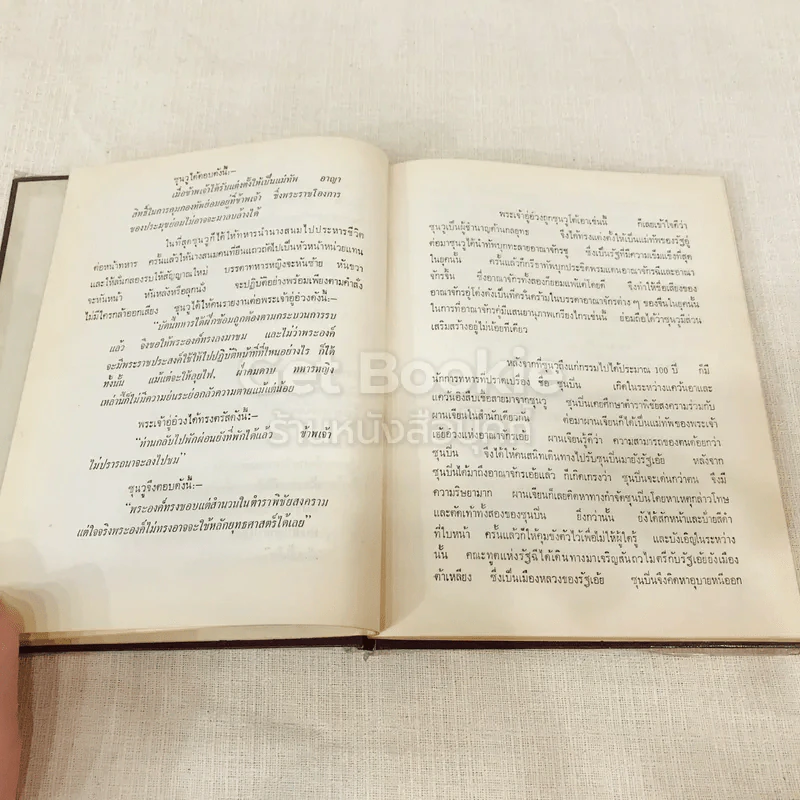 ซุนวูได้ตอบดังนี้:-
"เมื่อข้าพเจ้าได้รับแต่งตั้งให้เป็นแม่ทัพ อาญา
สิทธิ์ในการคุมกองทัพย่อมอยู่ที่ข้าพเจ้า ซึ่งพระราชโองการ
ของประมุขย่อมไม่อาจจะมาลบล้างได้
ในที่สุดซุนวูก็ได้ให้ทหารนำนางสนมไปประหารชีวิต
ต่อหน้าทหาร ครั้นแล้วให้นางสนมคนที่ยืนแถวถัดไปเป็นหัวหน้าหน่วยแทน
และให้ตีกลองรบให้สัญญาณใหม่ บรรดาทหารหญิงจะหันซ้าย หันขวา
จะหันหน้า หันหลังหรือลุกนั่ง จะปฏิบัติอย่างพร้อมเพียงตามคำสั่ง
ไม่มีใครกล้าออกเสียง ซุนวูได้ให้คนรายงานต่อพระเจ้าอู๋อ๋วงดังนี้:-
"บัดนี้ทหารได้ฝึกซ้อมถูกต้องตามกระบวนการรบ
แล้ว จึงขอให้พระองค์ทรงลงมาชม และไม่ว่าพระองค์
จะมีพระราชประสงค์ใช้ให้ไปปฏิบัติหน้าที่ที่ไหนอย่างไร ก็ได้
ทั้งนั้น แม้แต่จะให้ลุยไฟ, ฝ่าคมดาบ ทหารหญิง
เหล่านี้ก็ไม่มีความย่นระย่อกลัวความตายแม้แต่น้อย
พระเจ้าอู๋อ๋วงได้ทรงตรัสดังนี้:-
"ท่านกลับไปพักผ่อนยังที่พักได้แล้ว ข้าพเจ้า
ไม่ปรารถนาจะลงไปชม"
ซุนวูจึงตอบดังนี้:-
"พระองค์ทรงชอบแต่สำนวนในตำราพิชัยสงคราม
แต่ใจจริงพระองค์ไม่ทรงอาจจะใช้หลักยุทธศาสตร์ได้เลย"
พระเจ้าอู๋อ๋วงถูกซุนวูโต้เอาเช่นนี้ ก็เลยเข้าใจดีว่า
ซุนวูเป็นผู้ชำนาญด้านกลยุทธ จึงได้ทรงแต่งตั้งให้เป็นแม่ทัพของรัฐอู๋
ต่อมาซุนวูได้นำทัพบุกทะลายอาณาจักรชู่ ซึ่งเป็นรัฐที่มีความเข้มแข็งที่สุด
ในยุคนั้น ครั้นแล้วก็กรีธาทัพบุกประชิดพรมแดนอาณาจักรฉีและอาณา
จักรจิ้น ซึ่งอาณาจักรทั้งสองก็ยอมแพ้แต่โดยดี จึงทำให้ชื่อเสียงของ
อาณาจักรอู๋โด่งดังเป็นที่ครั่นคร้ามในบรรดาอาณาจักรต่าง ๆ ของจีนในยุคนั้น
ในการที่อาณาจักรอู๋มีแสนยานุภาพเกรียงไกรเช่นนี้ ย่อมถือได้ว่าซุนวูมีส่วน
เสริมสร้างอยู่ไม่น้อยทีเดียว
หลังจากที่ซุนวูถึงแก่กรรมไปได้ประมาณ 100 ปี ก็มี
นักการทหารที่ปราดเปรื่อง ชื่อ ซุนบิน เกิดในระหว่างแคว้นอาและ
แคว้นอิงสืบเชื้อสายมาจากซุนวู ซุนบินเคยศึกษาตำราพิชัยสงครามร่วมกับ
ผานเจียนในสำนักเดียวกัน ต่อมาผานเจียนก็ได้เป็นแม่ทัพของพระเจ้า
เอ้ยอ๋วงแห่งอาณาจักรเอ้ย ผานเจียนรู้ดีว่า ความสามารถของตนด้อยกว่า
ซุนบิน จึงได้ให้คนสนิทเดินทางไปรับซุนบินมายังรัฐเอ้ย หลังจาก
ซุนบินได้มาถึงอาณาจักรเอ้ยแล้ว ก็เกิดเกรงว่า ซุนบินจะเด่นกว่าตน จึงมี
ความริษยามาก ผานเจียนก็เลยคิดหาทางกำจัดซุนบินโดยหาเหตุกล่าวโทษ
และตัดเท้าทั้งสองของซุนบิน ยิ่งกว่านั้น ยังได้สักหน้าและป้ายสีดำ
ที่ใบหน้า ครั้นแล้วก็ได้คุมขังตัวไว้เพื่อไม่ให้ผู้ใดรู้ และบังเอิญในระหว่าง
นั้น คณะทูตแห่งรัฐฉีได้เดินทางมาเจริญสันถวไมตรีกับรัฐเอ้ยยังเมือง
ต้าเหลียง ซึ่งเป็นเมืองหลวงของรัฐเอ้ย ซุนบินจึงคิดหาอุบายหนีออก
Get Booky
ร้านหนังสือมือ